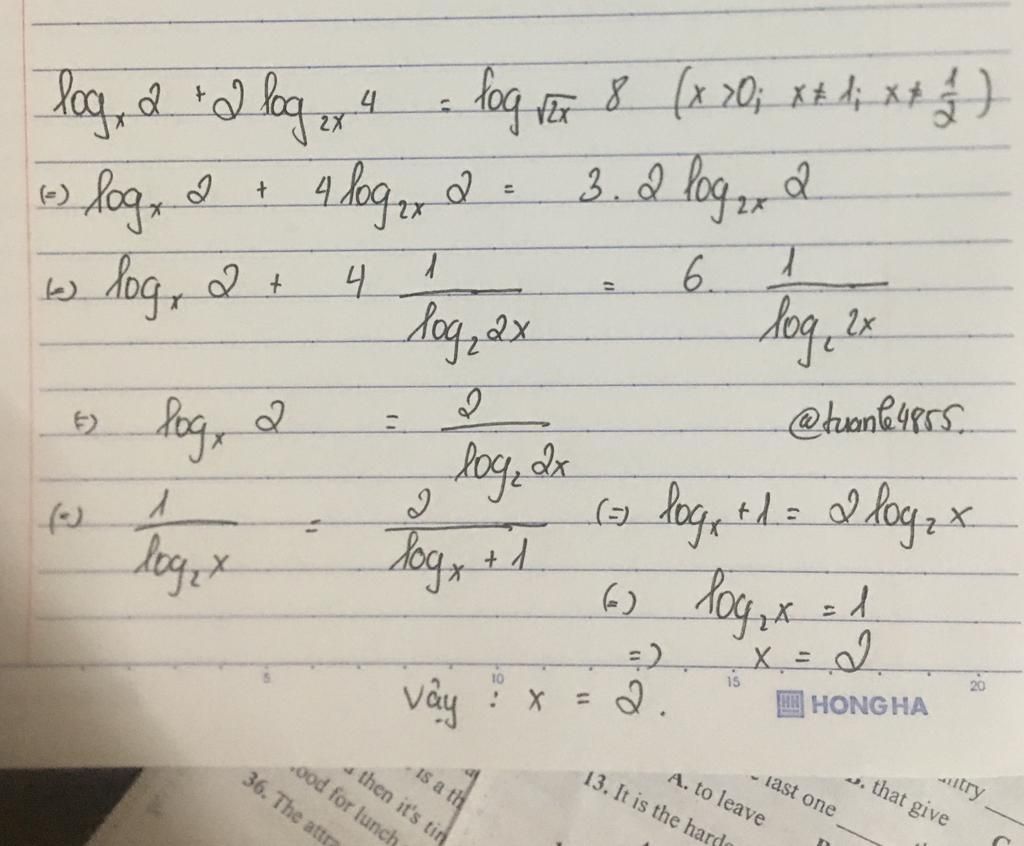 logₓ 2 + 2 log₂ₓ 4 = log_√2x 8 (x >0; x ≠ 1; x ≠ 1/2)
(=) logₓ 2 + 4 log₂ₓ 2 = 3. 2 log₂ₓ 2
(=) logₓ 2 + 4 1/log₂ 2x = 6. 1/log₂ 2x
(=) logₓ 2 = 2/log₂ 2x
@tuanle4855.
(=) 1/log₂ x = 2/(logₓ + 1) (=) logₓ + 1 = 2 log₂ x
(=) log₂ x = 1
=) x = 2
5 10 15 20
Vậy : x = 2.
HH HONG HA
is a th
then it's tin
ood for lunch
36. The attra
13. It is the hard
A. to leave
last one
B. that give
ntry